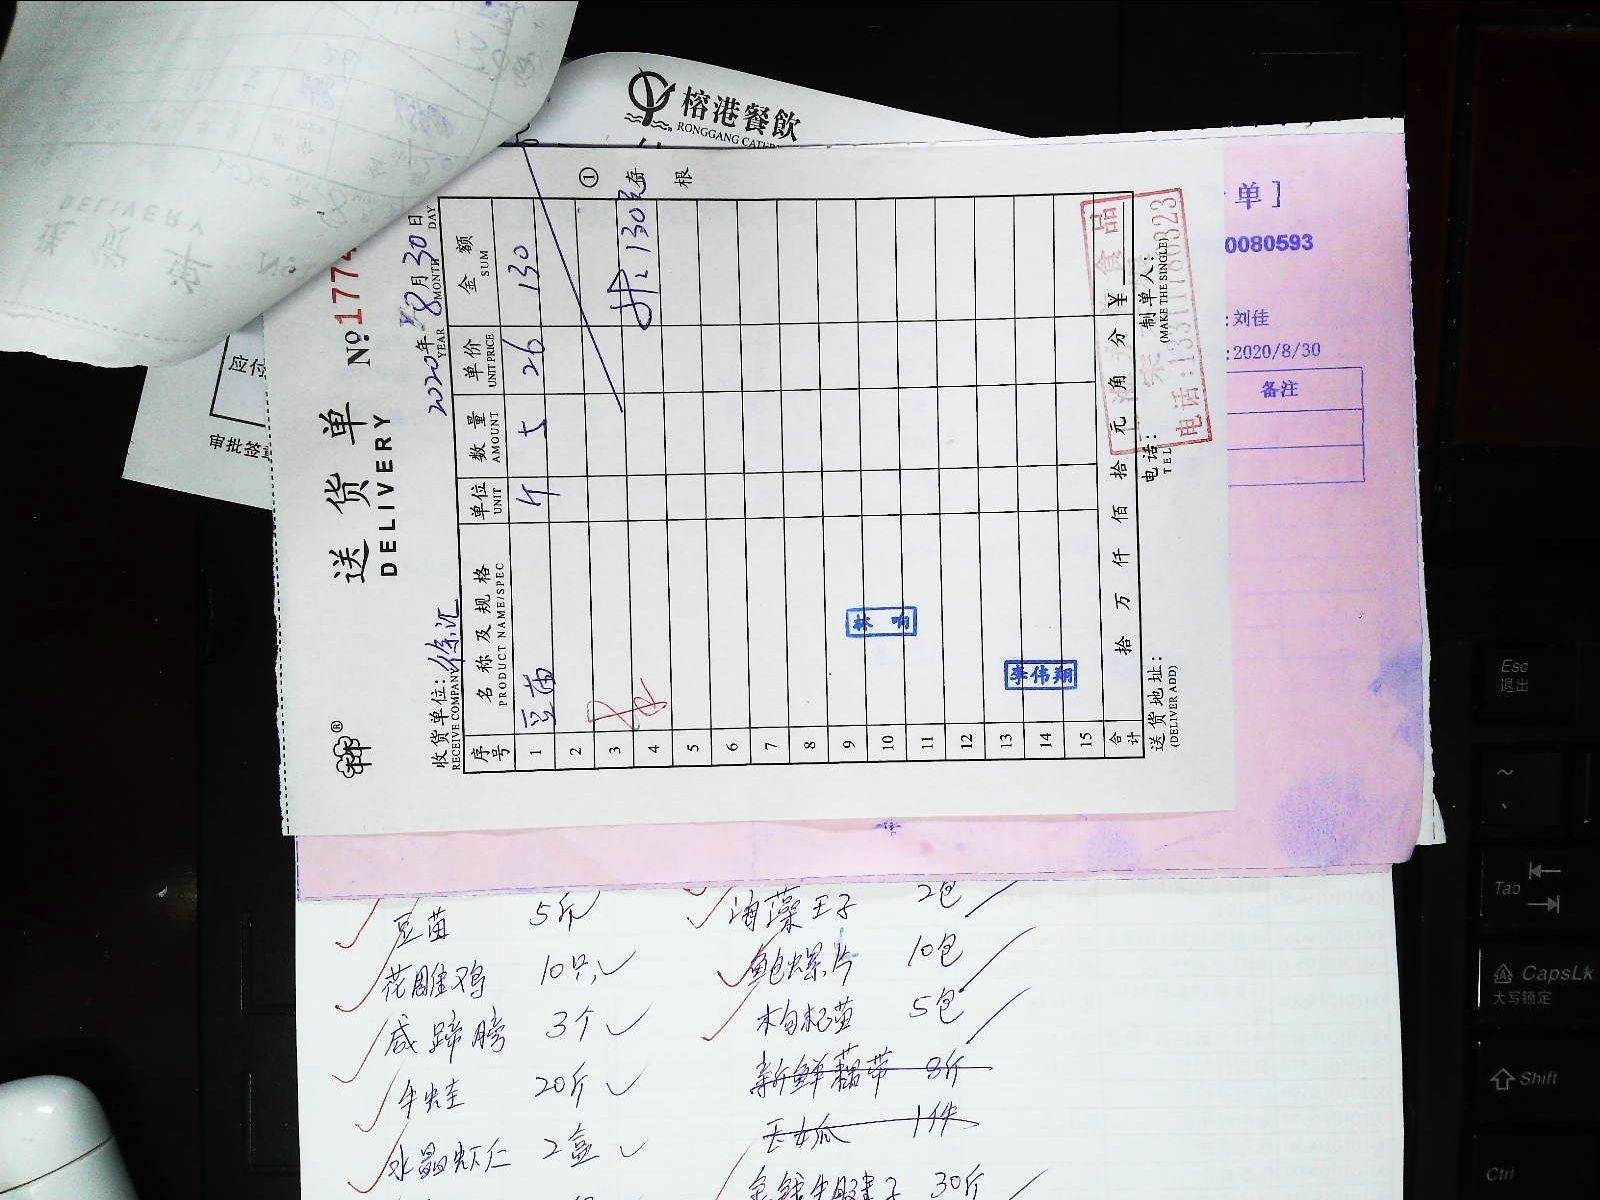 榕港餐飲
RONGGANG CATER
单]
0080593
:刘佳
:2020/8/30
备注
应付
审批签
送货单
DELIVERY
№177
收货单位:徐汇
RECEIVE COMPANY
2020年8月30日
YEAR MONTH DAY
序号 名称及规格 单位 数量 单价 金额
PRODUCT NAME/SPEC UNIT AMOUNT UNIT PRICE SUM
1 豆苗 斤 5 26 130
2
3
4
5
6
7
8
9
10
11
12
13
14
15
130元
①存根
李伟翔
合计 拾 万 仟 佰 拾 元 角 分 ¥
送货地址:
(DELIVER ADD)
电话:
TEL
制单人:
(MAKE THE SINGLE)
食品
豆苗 5斤
花雕鸡 10只
咸蹄膀 3个
牛蛙 20斤
水晶虾仁 2盒
海藻王子 2包
鲍螺片 10包
枸杞苗 5包
新鲜藕带 8斤
玉女瓜 1件
金钱牛腱子 30斤
Esc
退出
~
Tab
CapsLk
大写锁定
Shift
Ctrl